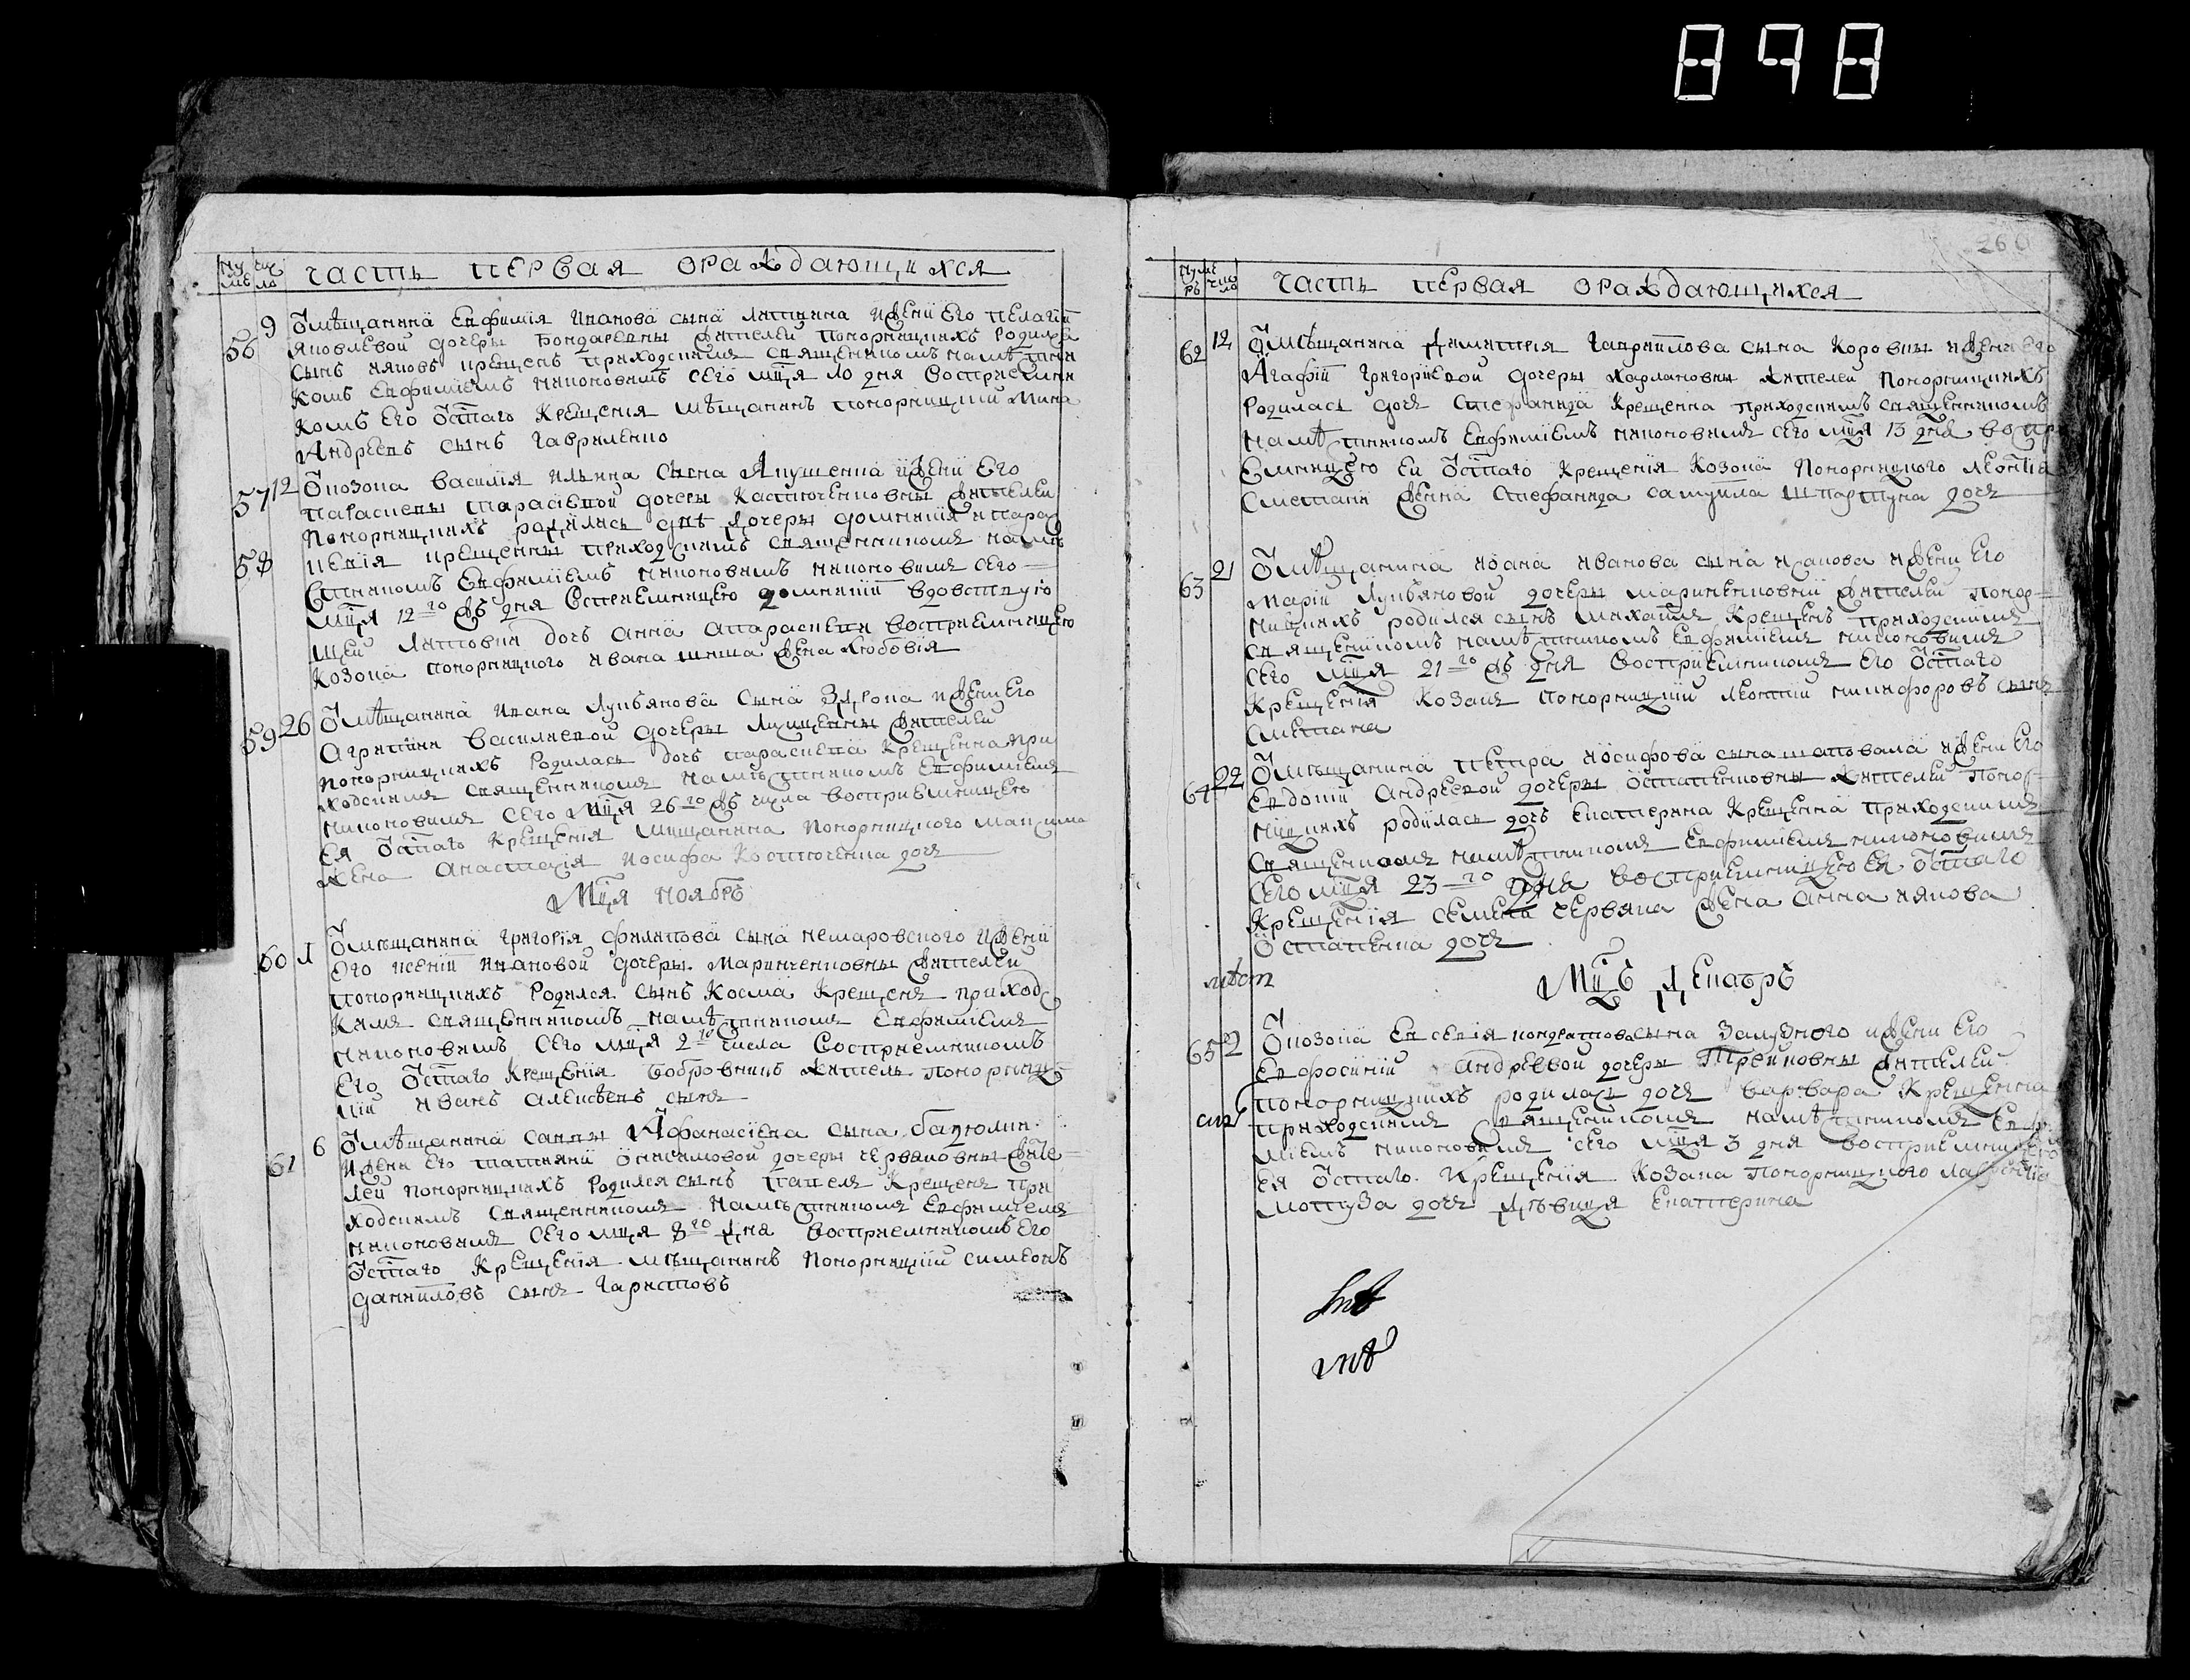 898
260
Нуме Чи
сло
часть первая ораждающихся
56 9 Ѹмѣщанина Евфимія Иванова сына Литвина ижени Его Пелагіи
Яковлевой дочеры Бондаревны жителей Понорницкихъ Родился
сынъ Іяковъ крещенъ приходскимъ священникомъ намѣстни
комъ Евфиміемъ Никоновимъ сего мця 10 дня Воспріемни
комъ Его Ѿ стаго Крещенія мѣщанинъ понорницкій Мина
Андреевъ сынъ Гавриленко
57 12 Ѹкозака Василія Ильина сына Япушенка ижени Его
параскевы Тарасіевой дочеры Костюченковны жителей
Понорницкихъ родились двѣ дочеры домникія ипарас
58 кевія крещенны приходскимъ священникомъ намѣ
стникомъ Евфиміемъ Никоновимъ сего
мця 12 го жъ дня Воспріемницею домникіи вдовствую
щей Литовки дочъ Анна апараскеви воспріемницею
Козака понорницкого Ивана жена Любовія
59 26 Ѹмѣщанина Ивана Лукьянова сына ижени Его
Агрипини Василиевой дочеры жителей
понорницкихъ Родилась дочъ параскева Крещенна при
ходскимъ священникомъ намѣстникомъ Евфиміемъ
никоновимъ сего мця 26 го жъ числа воспріемницею
Ея Ѿ стаго Крещенія мищанина Понорницкого максима
жена Анастасія Иосифа Костюченка дочъ
Мця ноябръ
60 1 Ѹмѣщанина Григорія Филипова сына немаровского ижени
Его ксеніи Ивановой дочеры Маринченковны жителей
понорницкихъ Родился сынъ Косма Крещенъ приход
кимъ священникомъ намѣстникомъ Евфиміемъ
никоновимъ сего мця 2 го числа воспріемникомъ
Его Ѿ стаго Крещенія Бобровникъ житель понорниц
кій Иванъ Алексѣевъ сынъ
61 6 Ѹмѣщанина Саввы Афанасіева сына
ижени Его татияни Онисимовой дочеры Червяковны жите
лей понорницкихъ Родился сынъ Павелъ Крещенъ при
ходскимъ священникомъ намѣстникомъ Евфиміемъ
никоновимъ сего мця 8 го дня воспріемникомъ Его
Ѿ стаго Крещенія мѣщанинъ Понорницкій симеонъ
даниіловъ сынъ
Нуме Число
ръ
часть первая ораждающихся
62 12 Ѹмѣщанина Димитрія Гавриилова сына Коровки ижени его
Агафіи Григоріевой дочеры Харлановны жителей Понорницкихъ
Родилась дочъ Стефанида Крещенна приходскимъ священникомъ
намѣстникомъ Евфиміемъ никоновимъ сего мця 13 дня воспрі
емницею Ей Ѿ стаго Крещенія Козака Понорницкого Леонтія
Сметани жена Стефанида самуила Шпартуна дочъ
63 21 Ѹмѣщанина Иоана Иванова сына Исакова ижени Его
Маріи Лукьяновой дочеры Маринченковни жителей понор
ницкихъ родился сынъ михаилъ Крещенъ приходскимъ
священикомъ намѣстникомъ Евфиміемъ никоновимъ
сего мця 21 го жъ дня Воспріемникомъ Его Ѿ стаго
Крещенія Козакъ понорницкій Леонтій никифоровъ сынъ
сметана
64 22 Ѹмѣщанина петра Иосифова сына шаповала ижени Его
Евдокіи Андреевой дочеры Остапенковны жителей Понор
ницкихъ родилась дочъ Екатерина Крещенна приходскимъ
священикомъ намѣстникомъ Евфиміемъ никоновимъ
сего мця 23 го дня воспріемницею Ея Ѿ стаго
Крещенія семена Червяка жена Анна Иякова
Остапенка дочъ
Мцъ Декабръ
65 2 Ѹкозака Евсевія Кондратова сына Залузного ижени Его
Евфросиніи Андреевой дочеры жителей
понорницкихъ родилась дочъ варвара Крещенна
приходскимъ священикомъ намѣстникомъ Евфи
міемъ никоновимъ сего мця 3 дня воспріемницею
Ея Ѿ стаго Крещенія Козака Понорницкого Лаврентія
мотуза дочъ дѣвица Екатерина